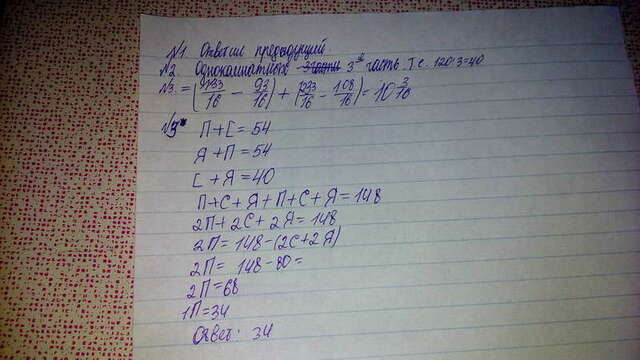 №1 Ответил предыдущий
№2 Однокомнатных 3я часть т.е. 120:3=40
№3. = (1133/16 - 93/16) + (1233/16 - 108/16) = 10 3/16
№5
П+С=54
Я+П=54
С+Я=40
П+С+Я+П+С+Я=148
2П+2С+2Я=148
2П=148-(2С+2Я)
2П= 148-80=
2П=68
1П=34
Ответ: 34